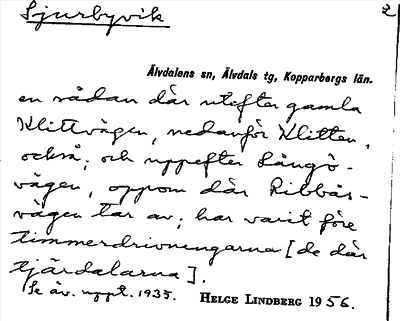 Sjurbyvik
2
Älvdalens sn, Älvdals tg, Kopparbergs län.
en sådan där utefter gamla
Klittvägen, nedanför Klitten,
också; och uppefter Långö-
vägen, oppom där Ribbås-
vägen tar av; har varit före
timmerdrivningarna [de där
tjärdalarna].
Se äv. uppt. 1935.
HELGE LINDBERG 1956.